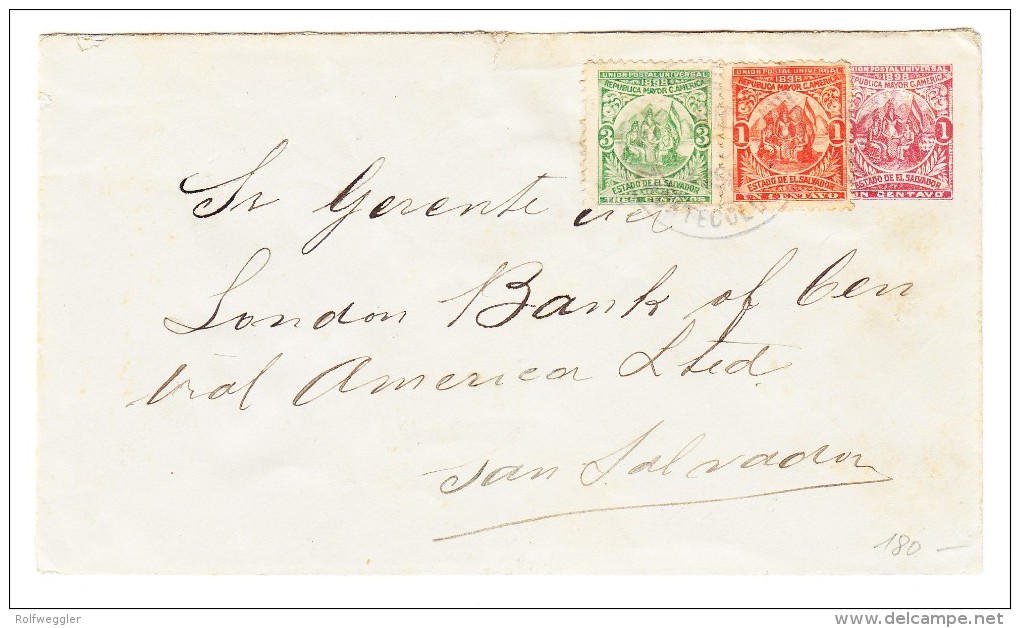 UNION POSTAL UNIVERSAL
1898
REPUBLICA MAYOR C.AMERICA
3 3
ESTADO DE EL SALVADOR
TRES CENTAVOS
UNION POSTAL UNIVERSAL
1898
REPUBLICA MAYOR C.AMERICA
1 1
ESTADO DE EL SALVADOR
UN CENTAVO
UNION POSTAL UNIVERSAL
1898
REPUBLICA MAYOR C.AMERICA
1
ESTADO DE EL SALVADOR
UN CENTAVO
Sr Gerente del
London Bank of Cen
tral America Lted.
San Salvador
180 –
Rolfweggler
delcampe.net